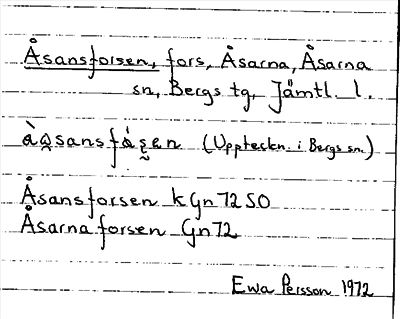 Åsansforsen, fors, Åsarna, Åsarna
sn, Bergs tg, Jämtl. l.
(Uppteckn. i Bergs sn.)
Åsansforsen kGn 72 SO
Åsarnaforsen Gn 72
Ewa Persson 1972